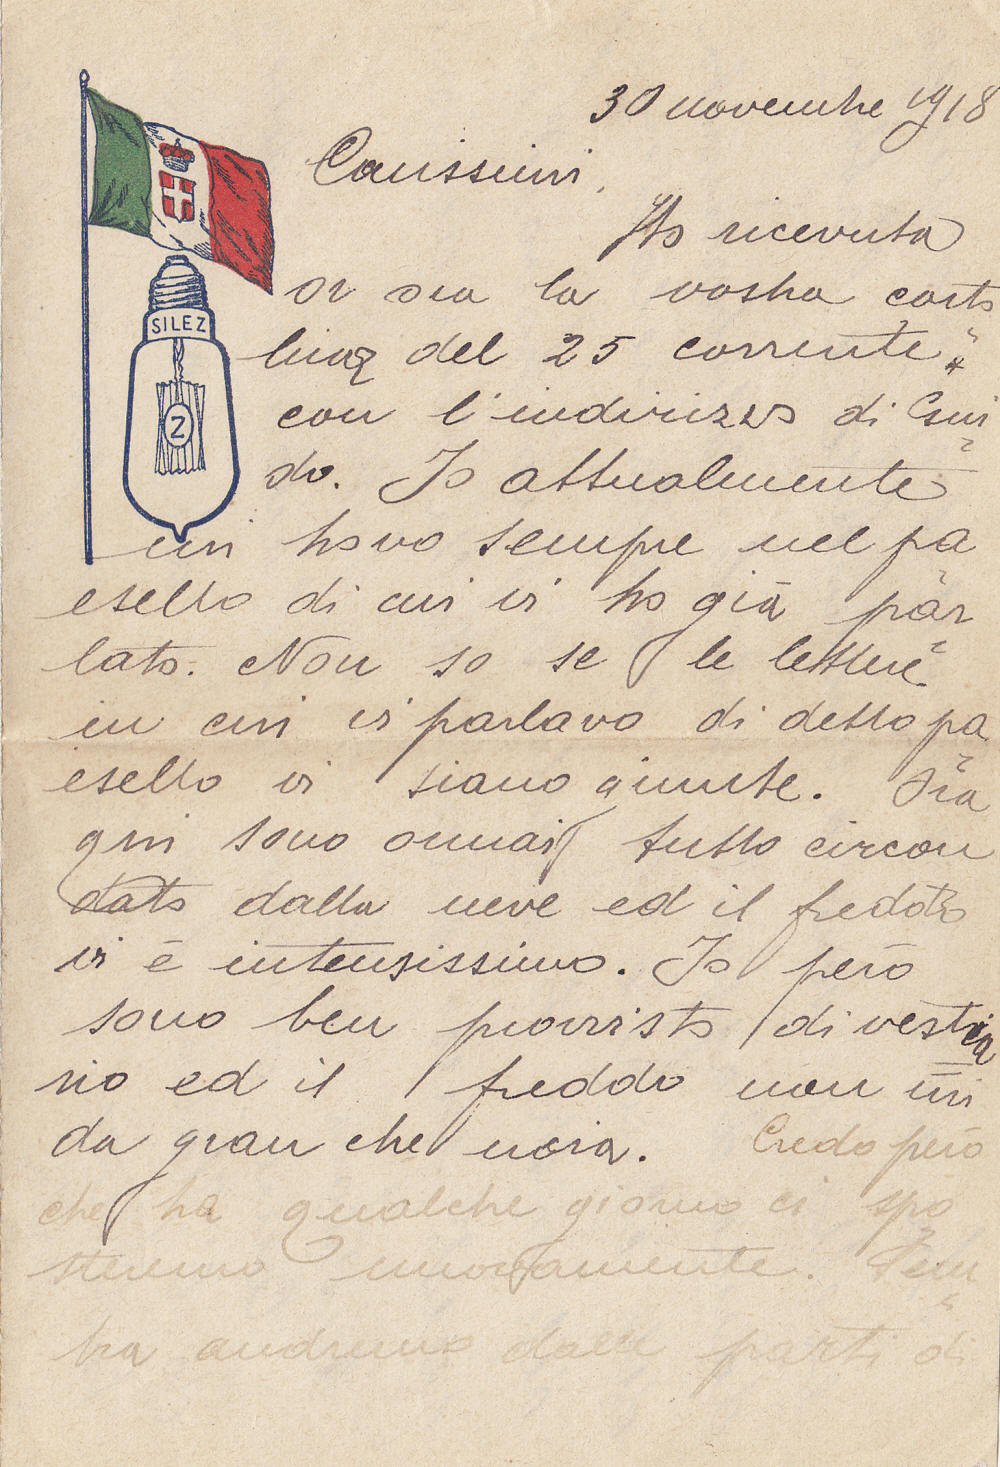 30 novembre 1918
Carissimi,
Ho ricevuta
or ora la vostra carto
lina del 25 corrente
con l'indirizzo di Gui
do. Io attualmente
mi trovo sempre nel pa
esello di cui vi ho già par
lato. Non so se le lettere
in cui vi parlavo di detto pa
esello vi siano giunte. Fra
qui sono ormai tutto circon
dato dalla neve ed il freddo
vi è intensissimo. Io però
sono ben provvisto di vestia
rio ed il freddo non mi
da gran che noia. Credo però
che fra qualche giorno ci spo
steremo nuovamente. Sem
bra andremo dalle parti di
SILEZ
Z